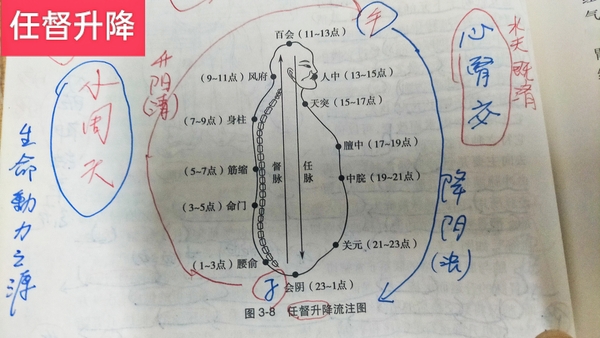 任督升降
午
水火既济
心肾交
百会（11~13点）
升阳（清）
（9~11点）风府
人中（13~15点）
小周天
天突（15~17点）
（7~9点）身柱
生命動力之源
膻中（17~19点）
（5~7点）筋缩
督脉
任脉
中脘（19~21点）
降阴（浊）
（3~5点）命门
关元（21~23点）
（1~3点）腰俞
子
会阴（23~1点）
图 3-8 任督升降流注图
气